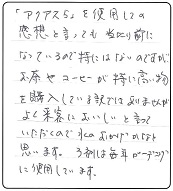 「アクアス5」を使用しての
感想と言っても当たり前に
なっているので特にはないのですが
お茶やコーヒーが特に高い物
を購入している訳ではありませんが
よく来客においしいと言って
いただくので水のおかげかなと
思います。3剤は毎年ガーデニング
に使用しています。